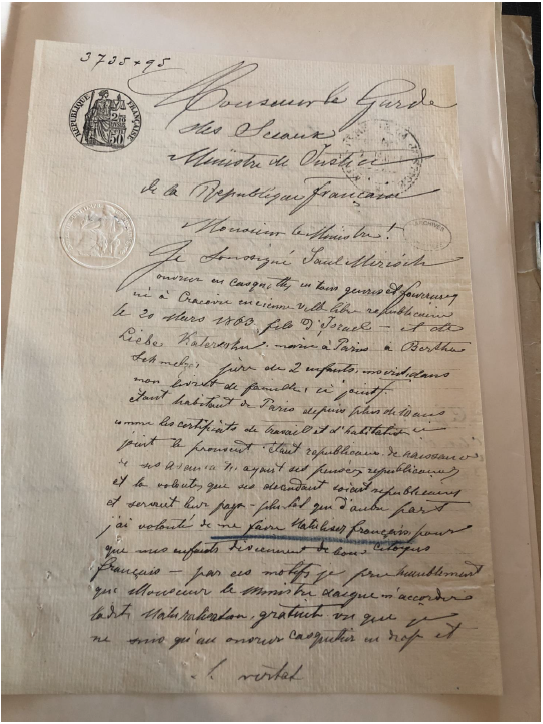 3735 x 95
RÉPUBLIQUE FRANÇAISE
2/10
50
Monsieur le Garde
des Sceaux
Ministre de Justice
de la République française
Monsieur le Ministre!
Je soussigné Saul
ouvrier en casquettes en tous genres et fourrures
né à Cracovie ancienne ville libre republicaine
le 20 Mars 1863, fils d'Israel - et de
Liebe marié à Paris à Berthe
père de 2 enfants, inscrit dans
mon livret de famille, ci joint,
étant habitant de Paris depuis plus de 10 ans
comme les certificats de travail et d'habitation ci
joint le prouvent. Etant republicain de naissance
ayant ses pensees republicaines
et la volonté que ses descendant soient republicains
et servent leur pays - plus tot que d'autre part
j'ai volonté de me faire Naturliser français pour
que mes enfants deviennent de bons citoyens
français - par ces motifs je prie humblement
que Monsieur le Ministre daigne m'accorder
ladite Naturalisation, gratuit vu que je
ne suis qu'un ouvrier casquetier en drap et